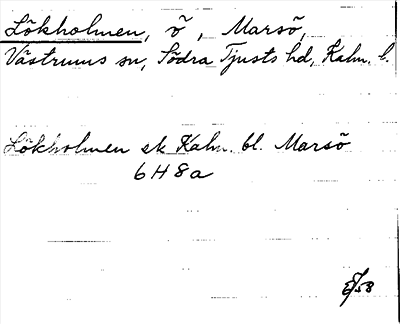 Lökholmen, ö, Marsö,
Västrums sn, Södra Tjusts hd, Kalm. l.
Lökholmen ek Kalm. bl. Marsö
6 H 8 a